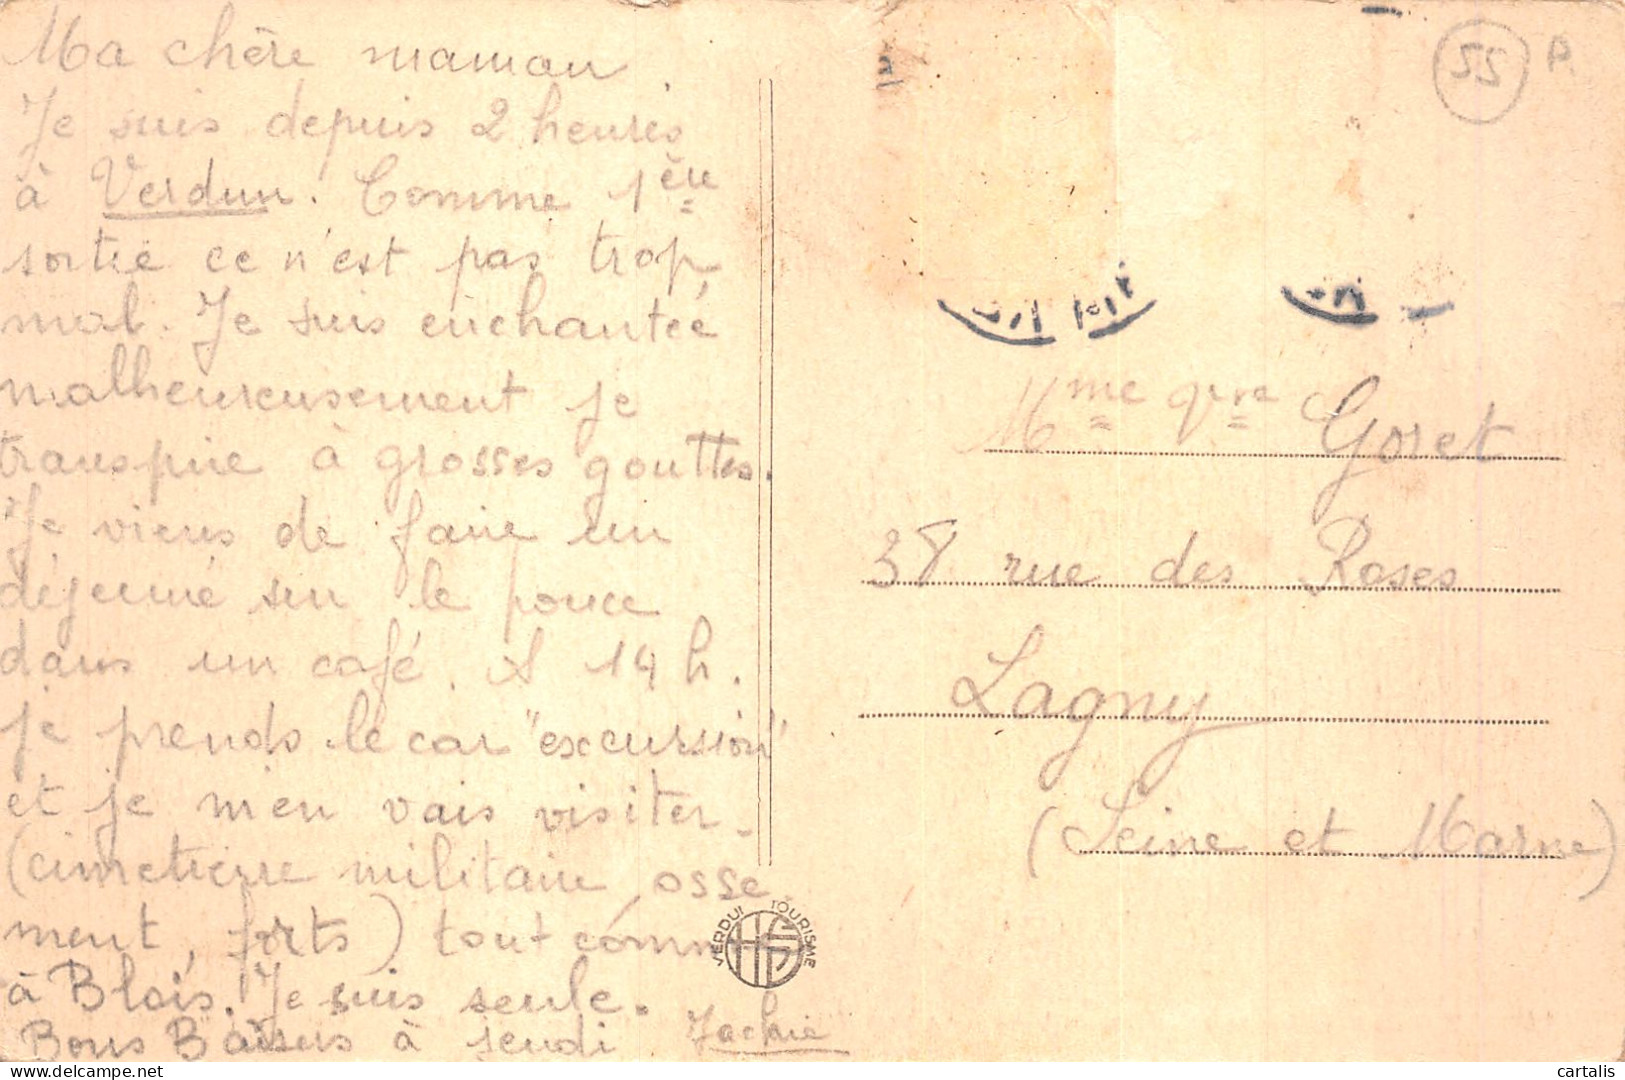 Ma chère maman
Je suis depuis 2 heures
à Verdun. Comme 1ère
sortie ce n'est pas trop
mal. Je suis enchantée
malheureusement je
transpire à grosses gouttes.
Je viens de faire un
déjeuné sur le pouce
dans un café. A 14 h.
je prends le car "excursion"
et je m'en vais visiter
(cimetierre militaire, osse
ment, forts) tout comme
à Blois. Je suis seule.
Bons Baisers à jeudi
55 A
Mme Gvre Goret
38 rue des Roses
Lagny
(Seine et Marne)
VERDUN TOURISME
HS
cartalis
delcampe.net